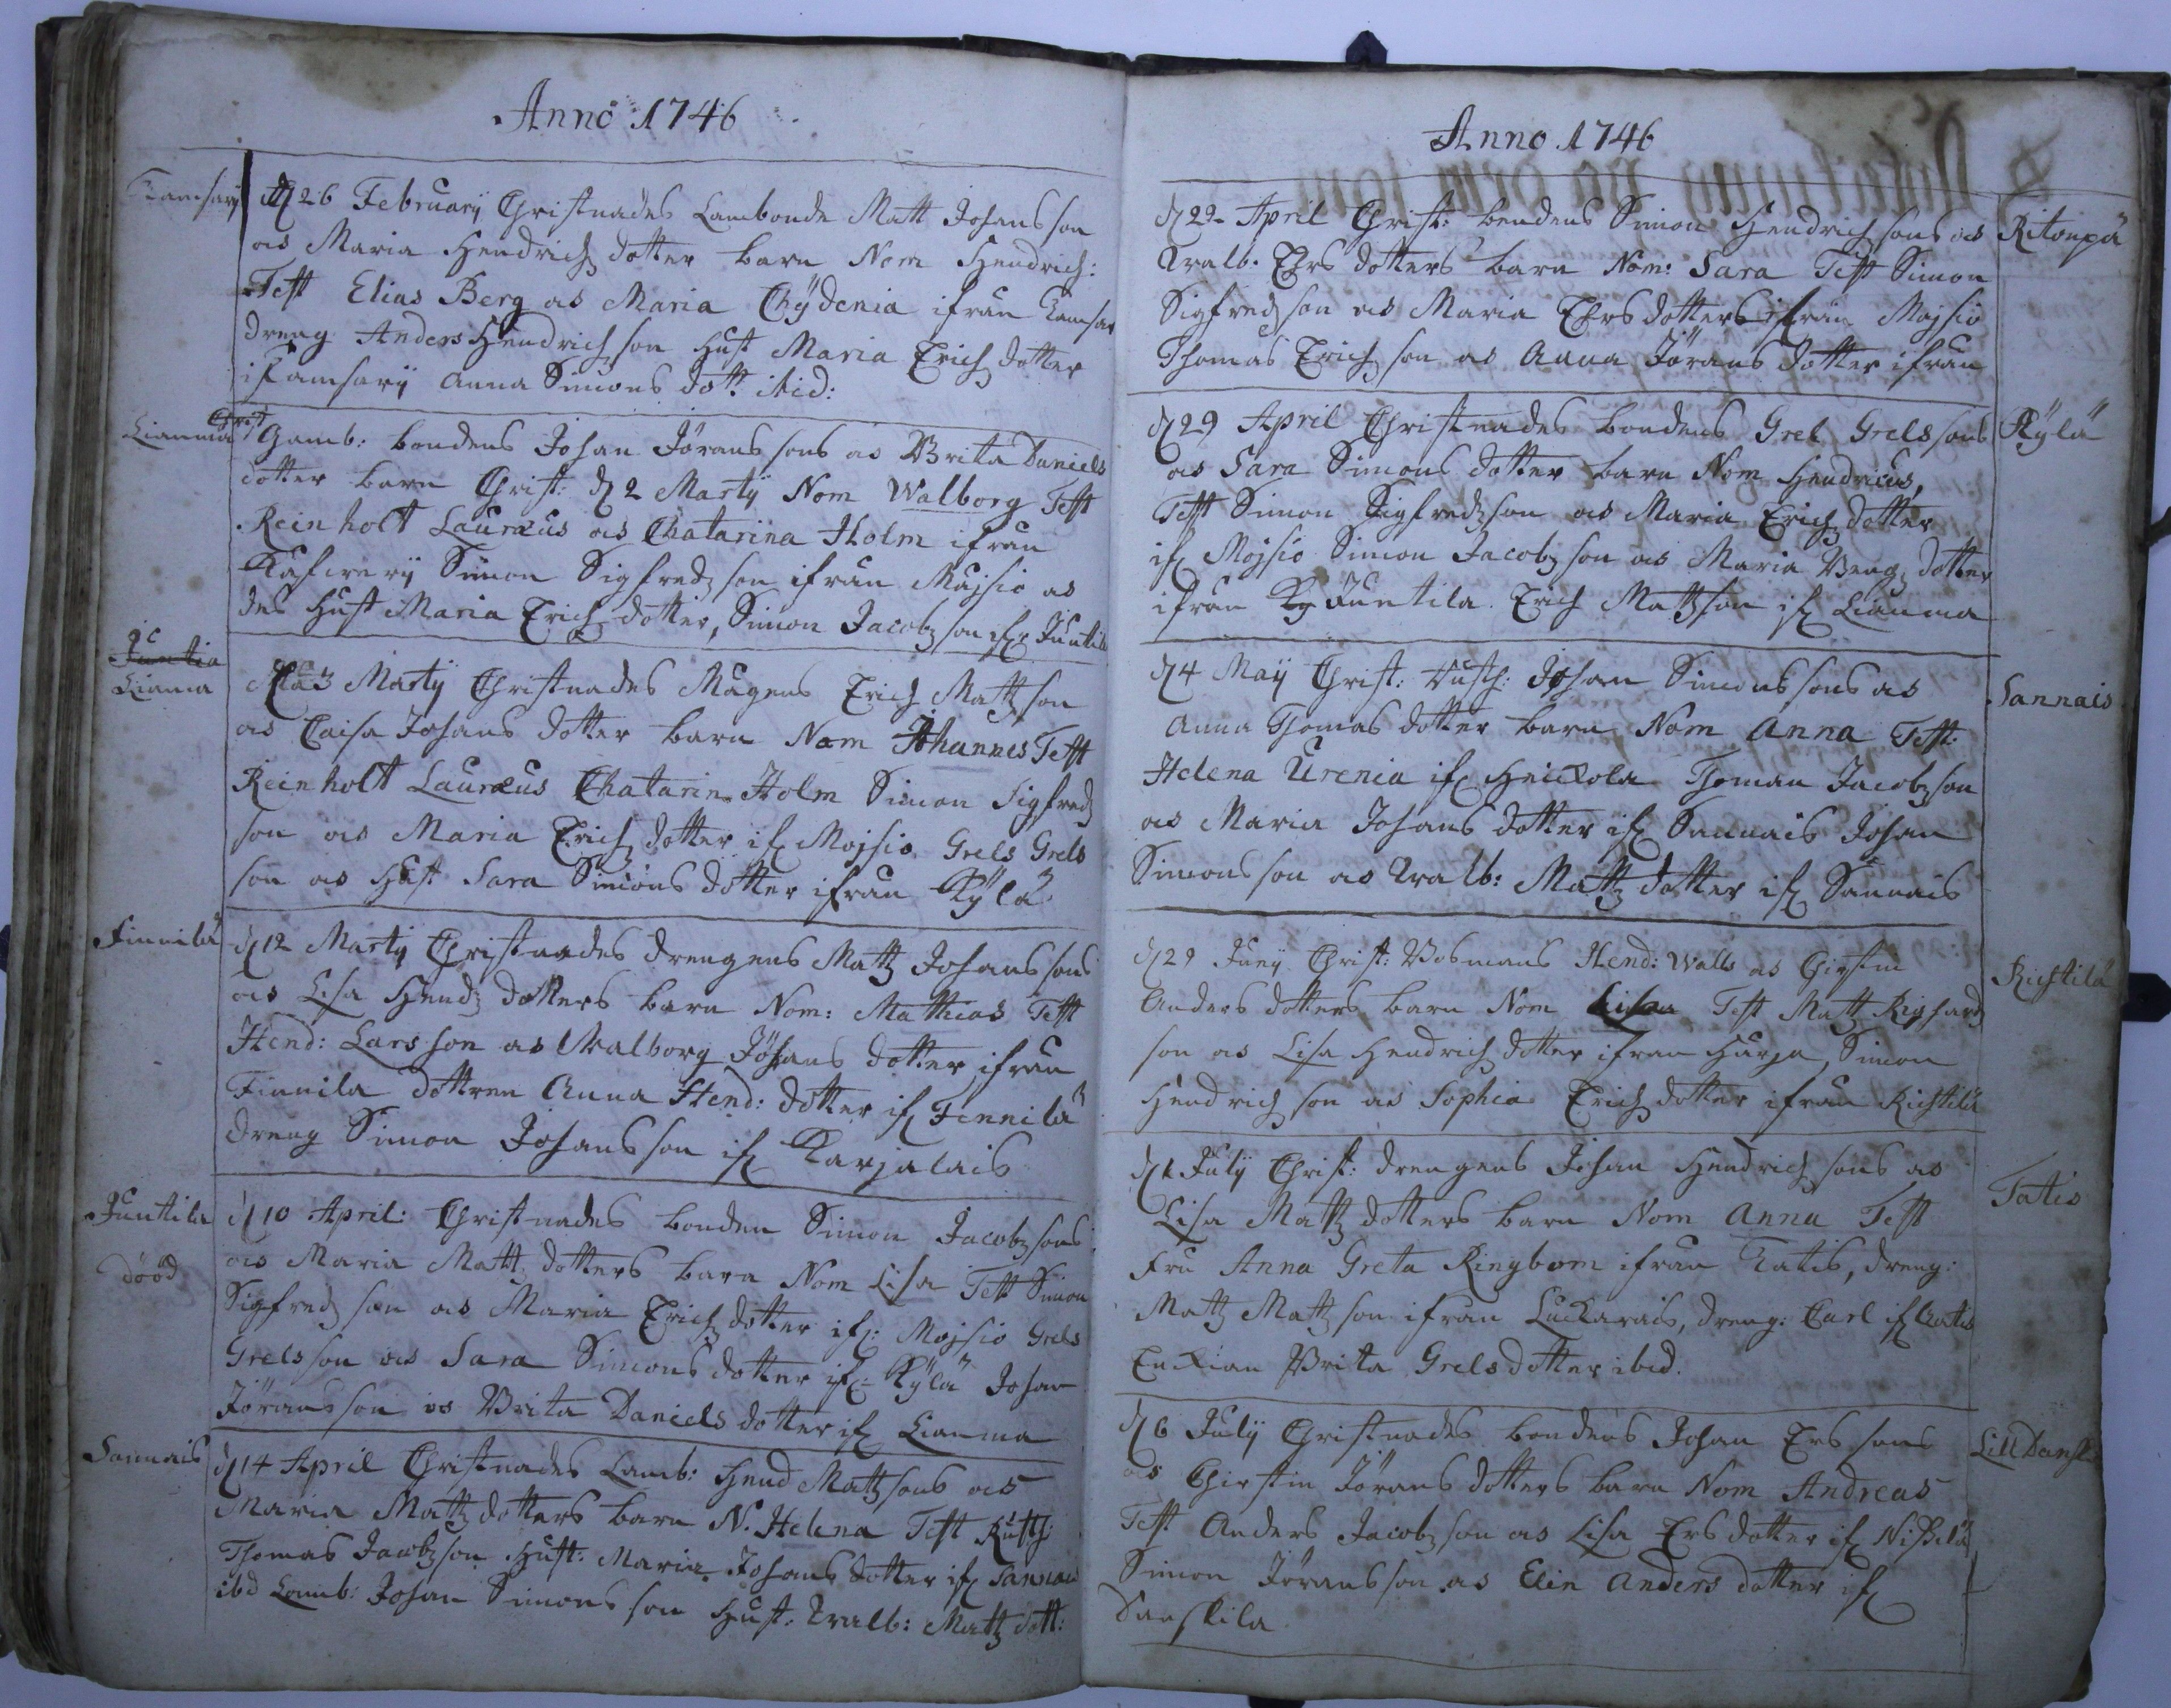 Anno 1746
Kamsarÿ
d 26 Februarÿ Christnades Lambonde Matt Johans son
as Maria Hendrich dotter barn Nom Hendrich:
Test Elias Berg as Maria Chÿdenia ifrån Kamsar
dreng Anders Hendrich son hust Maria Erich dotter
i Kamsarÿ Anna Simons dott. ibid:
Lianma
Christ
Gamb: bondens Johan Jörans sons as Brita Daniels
dotter barn Christ: d 2 Martÿ Nom Walborg Test
Reinholt Lauræus as Chatarina Holm ifrån
Simon Sigfredz son ifrån Mojsio as
des hust Maria Erich dotter, Simon Jacobz son ifr Juntila
Juntia
Lianma
d 3 Martÿ Christnades Mågens Erich Mattz son
as Caisa Johans dotter barn Nom Johannes Test
Reinholt Lauræus Chatarin Holm Simon Sigfredz
son as Maria Erich dotter if Mojsio Grels Grels
son as Hust Sara Simons dotter ifrån Kÿlä
Finnilä
d 12 Martÿ Christnades drengens Mattz Johans sons
as Lisa Hendz dotters barn Nom: Mathias Test
Hend: Lars son as Walborg Johans dotter ifrån
Finnila dottren Anna Hend: dotter if Finnilä
dreng Simon Johans son if Karjalais
Juntila
dööd
d 10 April: Christnades bonden Simon Jacobz sons
as Maria Matt dotters barn Nom Lisa Test Simon
Sigfredz son as Maria Erich dotter if: Mojsio Grels
Grels son as Sara Simons dotter if: Kÿlä Johan
Jörans son as Brita Daniels dotter if Lianma
Sannais
d 14 April Christnades Lamb: Hend Mattz sons as
Maria Mattz dotters barn N. Helena Test Rusth:
Thomas Jacobz son Hust: Maria Johans dotter if Sannais
ibd Lamb: Johan Simons son Hust: Walb: Mattz dott:
Anno 1746
Ritonpä
d 22 April Christ: bondens Simon Hendrich sons as
Walb. Ers dotters barn Nom: Sara Test Simon
Sigfredz son as Maria Ers dotters ifrån Mojsio
Thomas Erich son as Anna Jörans dotter ifrån
Kÿlä
d 29 April Christnades bondens Grels Grels sons
as Sara Simons dotter barn Nom Hendricus,
Test Simon Sigfredz son as Maria Erich dotter
if Mojsio Simon Jacobz son as Maria Bengz dotter
ifrån Kÿ Juntila. Erich Mattz son if Lianma
Sannais
d 4 Maÿ Christ: Rusth: Johan Simons sons as
Anna Thomas dotter barn Nom Anna Test:
Helena Urenia if Heickola Thomas Jacobz son
as Maria Johans dotter if Sannais Johan
Simons son as Walb: Mattz dotter if Sannais
Richtila
d 29 Junÿ Christ: Bosmans Hend: Walls as Chirstin
Anders dotters barn Nom Lisa Test Matt Righardz
son as Lisa Hendrich dotter ifrån Harja, Simon
Hendrich son as Sophia Erich dotter ifrån Richtila
Tatis
d 1 Julÿ Christ: drengens Johan Hendrich sons as
Lisa Mattz dotters barn Nom Anna Test
Fru Anna Greta Ringbom ifrån Tatis, dreng:
Mattz Mattz son ifrån Luckarais, dreng: Carl if Tatis
Enkian Brita Grels dotter ibid.
Lill Danskila
d 6 Julÿ Christnades bondens Johan Ers sons
as Chirstin Jörans dotters barn Nom Andreas
Test Anders Jacobz son as Lisa Ers dotter if Nißilä
Simon Jörans son as Elin Anders dotter if
Danskila